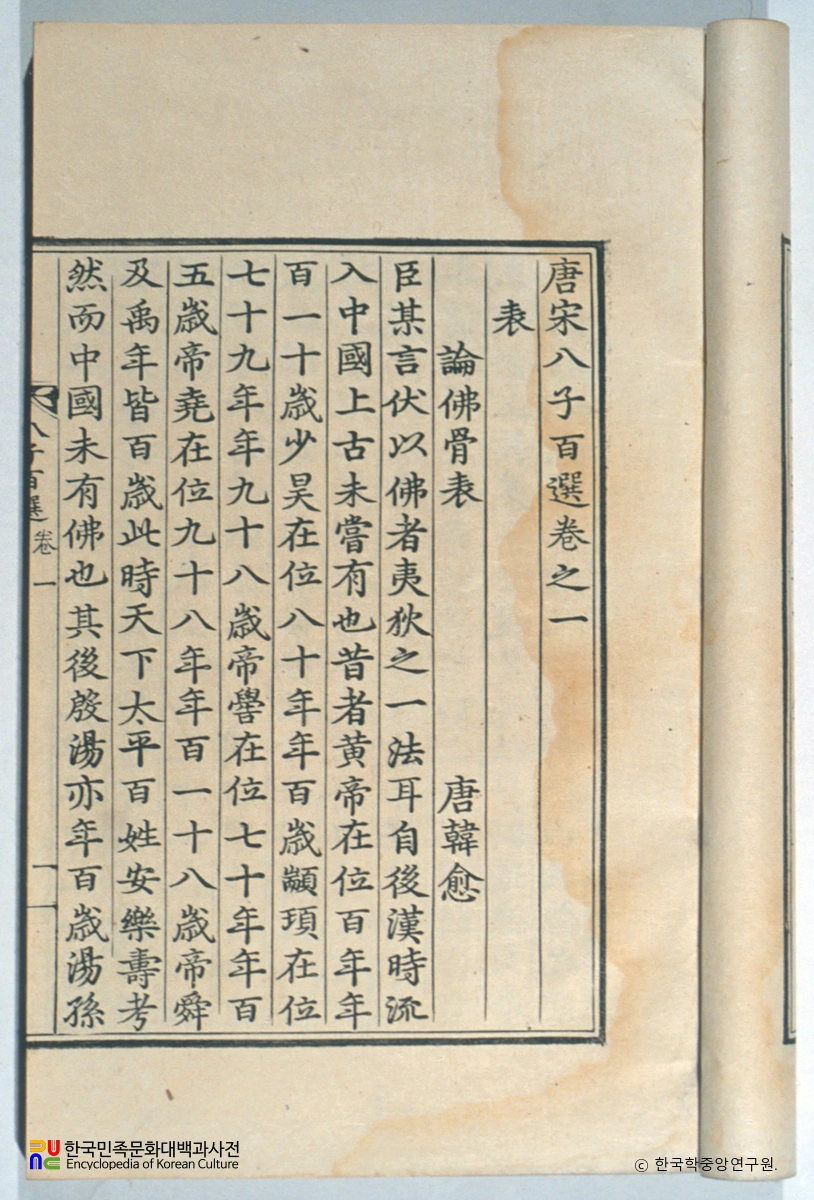 唐宋八子百選卷之一
表
論佛骨表 唐韓愈
臣某言伏以佛者夷狄之一法耳自後漢時流
入中國上古未嘗有也昔者黃帝在位百年年
百一十歲少昊在位八十年年百歲顓頊在位
七十九年年九十八歲帝嚳在位七十年年百
五歲帝堯在位九十八年年百一十八歲帝舜
及禹年皆百歲此時天下太平百姓安樂壽考
然而中國未有佛也其後殷湯亦年百歲湯孫
八子百選 卷一
한국민족문화대백과사전
Encyclopedia of Korean Culture
ⓒ 한국학중앙연구원.